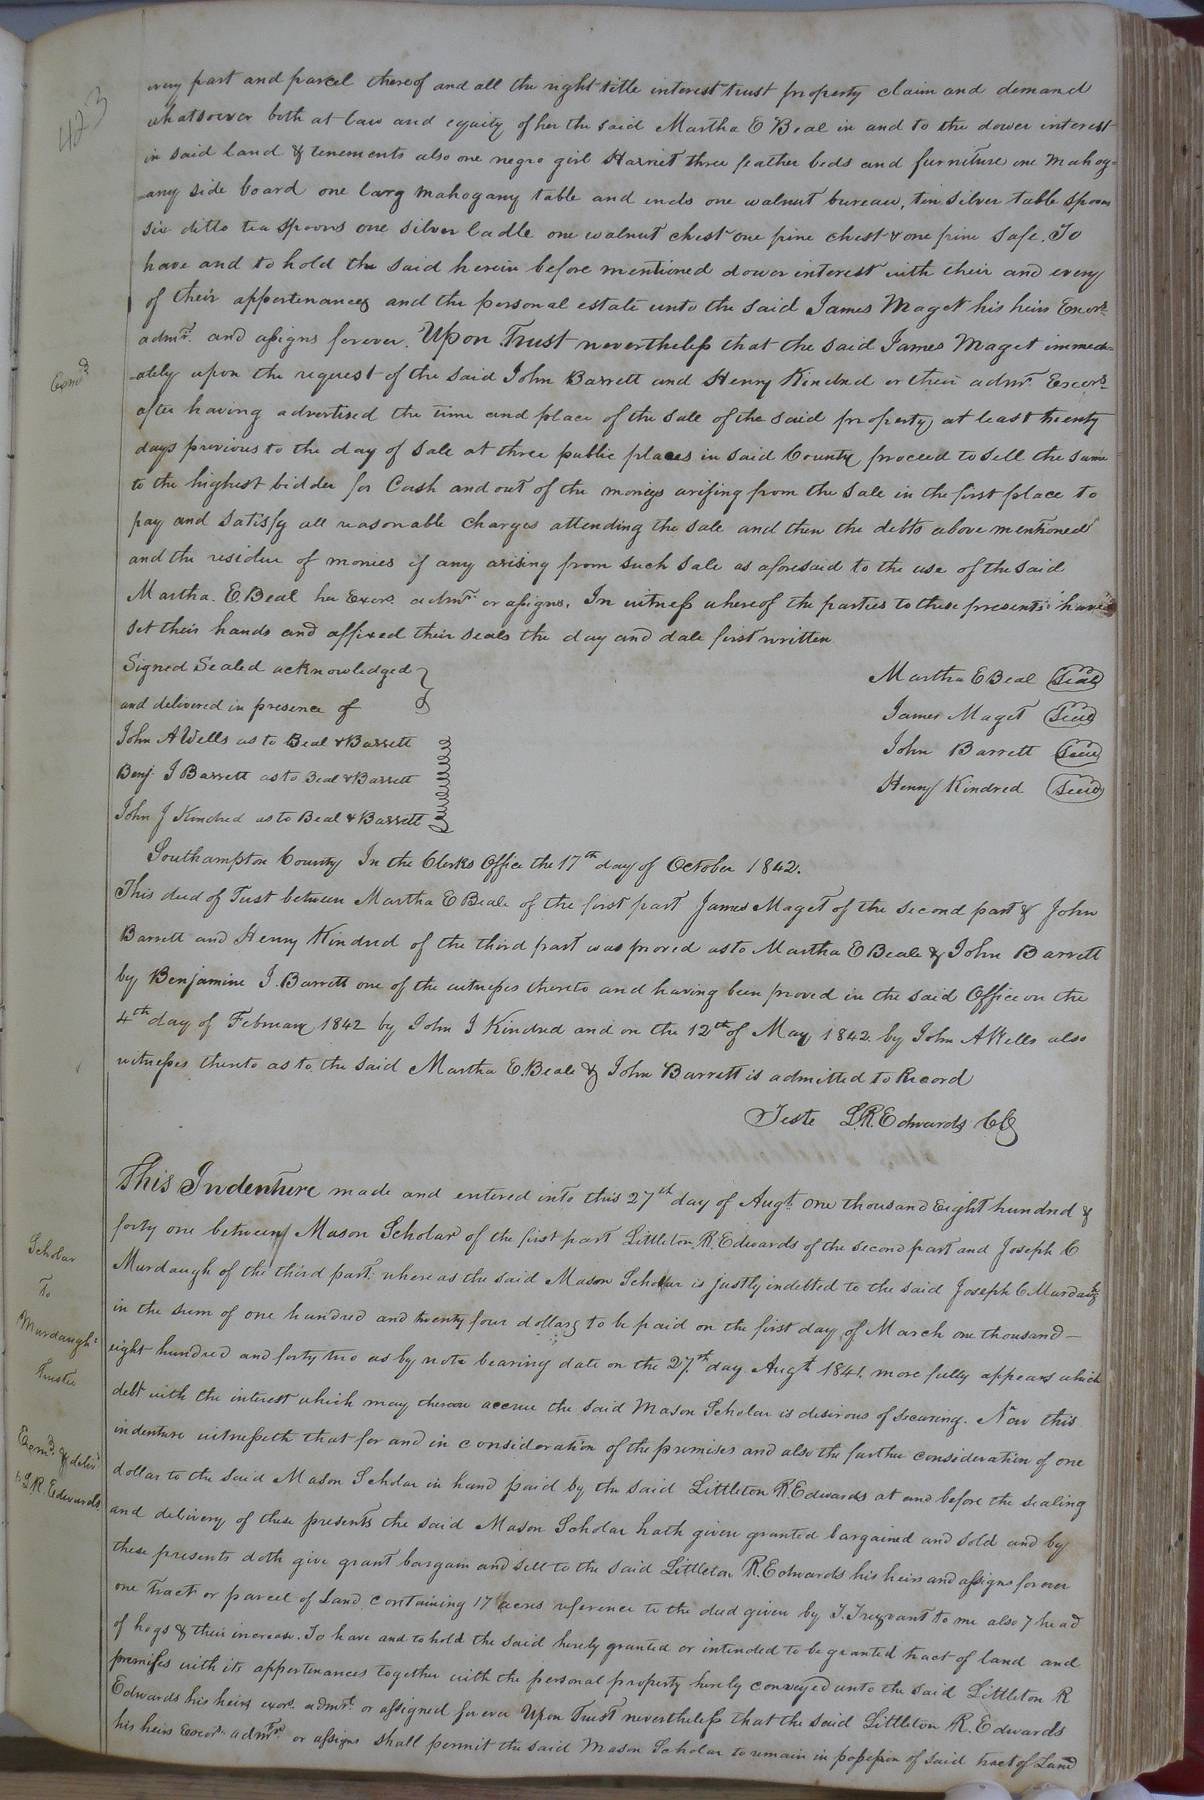 423
every part and parcel thereof and all the right title interest trust property claim and demand
whatsoever both at law and equity of her the said Martha E Beal in and to the dower interest
in said land & tenements also one negro girl Harriet three feather beds and furniture one mahog=
=any side board one larg mahogany table and ends one walnut bureau, ten silver table spoons
six ditto tea spoons one silver ladle one walnut chest one pine chest & one pine safe. To
have and to hold the said herein before mentioned dower interest with their and every
of their appertenances and the personal estate unto the said James Maget his heirs Excors.
admrs. and assigns forever. Upon Trust nevertheless that the said James Maget immedi=
Exmd.
=ately upon the request of the said John Barrett and Henry Kindred or their admr. Excors.
after having advertised the time and place of the sale of the said property at least twenty
days previous to the day of sale at three public places in said County proceed to sell the same
to the highest bidder for Cash and out of the moneys arising from the sale in the first place to
pay and satisfy all reasonable charges attending the sale and then the debts above mentioned
and the residue of monies if any arising from such sale as aforesaid to the use of the said
Martha. E. Beal her Excors. admrs. or assigns. In witness whereof the parties to these presents have
set their hands and affixed their seals the day and date first written
Signed Sealed acknowledged
and delivered in presence of
John A Wells as to Beal & Barrett
Benj. J Barrett as to Beal & Barrett
John J Kindred as to Beal & Barrett
Martha E Beal Seal
James Maget Seal
John Barrett Seal
Henry Kindred Seal
Southampton County In the Clerks Office the 17th day of October 1842.
This deed of Trust between Martha E Beale of the first part James Maget of the second part & John
Barrett and Henry Kindred of the third part was proved as to Martha E Beale & John Barrett
by Benjamine J. Barrett one of the witnesses thereto and having been proved in the said Office on the
4th day of February 1842 by John J Kindred and on the 12th of May 1842 by John A Wells also
witnesses thereto as to the said Martha E. Beale & John Barrett is admitted to Record
Teste L.R. Edwards CC
This Indenture made and entered into this 27th day of Augt. One thousand Eight hundred &
forty one between Mason Scholar of the first part Littleton. R. Edwards of the second part and Joseph C
Scholar
To
Murdaugh's
Trustee
Murdaugh of the third part, whereas the said Mason Scholar is justly indebted to the said Joseph C Murdaugh
in the sum of one hundred and twenty four dollars to be paid on the first day of March one thousand
eight hundred and forty two as by note bearing date on the 27th. day Augt. 1841. more fully appears which
debt with the interest which may thereon accrue the said Mason Scholar is desirous of securing. Now this
indenture witnesseth that for and in consideration of the premises and also the further consideration of one
Exmd. & delivd.
to L.R. Edwards
dollar to the said Mason Scholar in hand paid by the said Littleton R Edwards at and before the sealing
and delivery of these presents the said Mason Scholar hath given granted bargained and sold and by
these presents doth give grant bargain and sell to the said Littleton R. Edwards his heirs and assigns forever
one Tract or parcel of Land containing 17 acres reference to the deed given by J. Trezvant to me also 7 head
of hogs & their increase. To have and to hold the said hereby granted or intended to be granted tract of land and
premises with its appertenances together with the personal property hereby conveyed unto the said Littleton R
Edwards his heirs exors. admrs. or assigned forever Upon Trust nevertheless that the said Littleton R. Edwards
his heirs Excors. admrs. or assigns shall permit the said Mason Scholar to remain in possession of said tract of Land